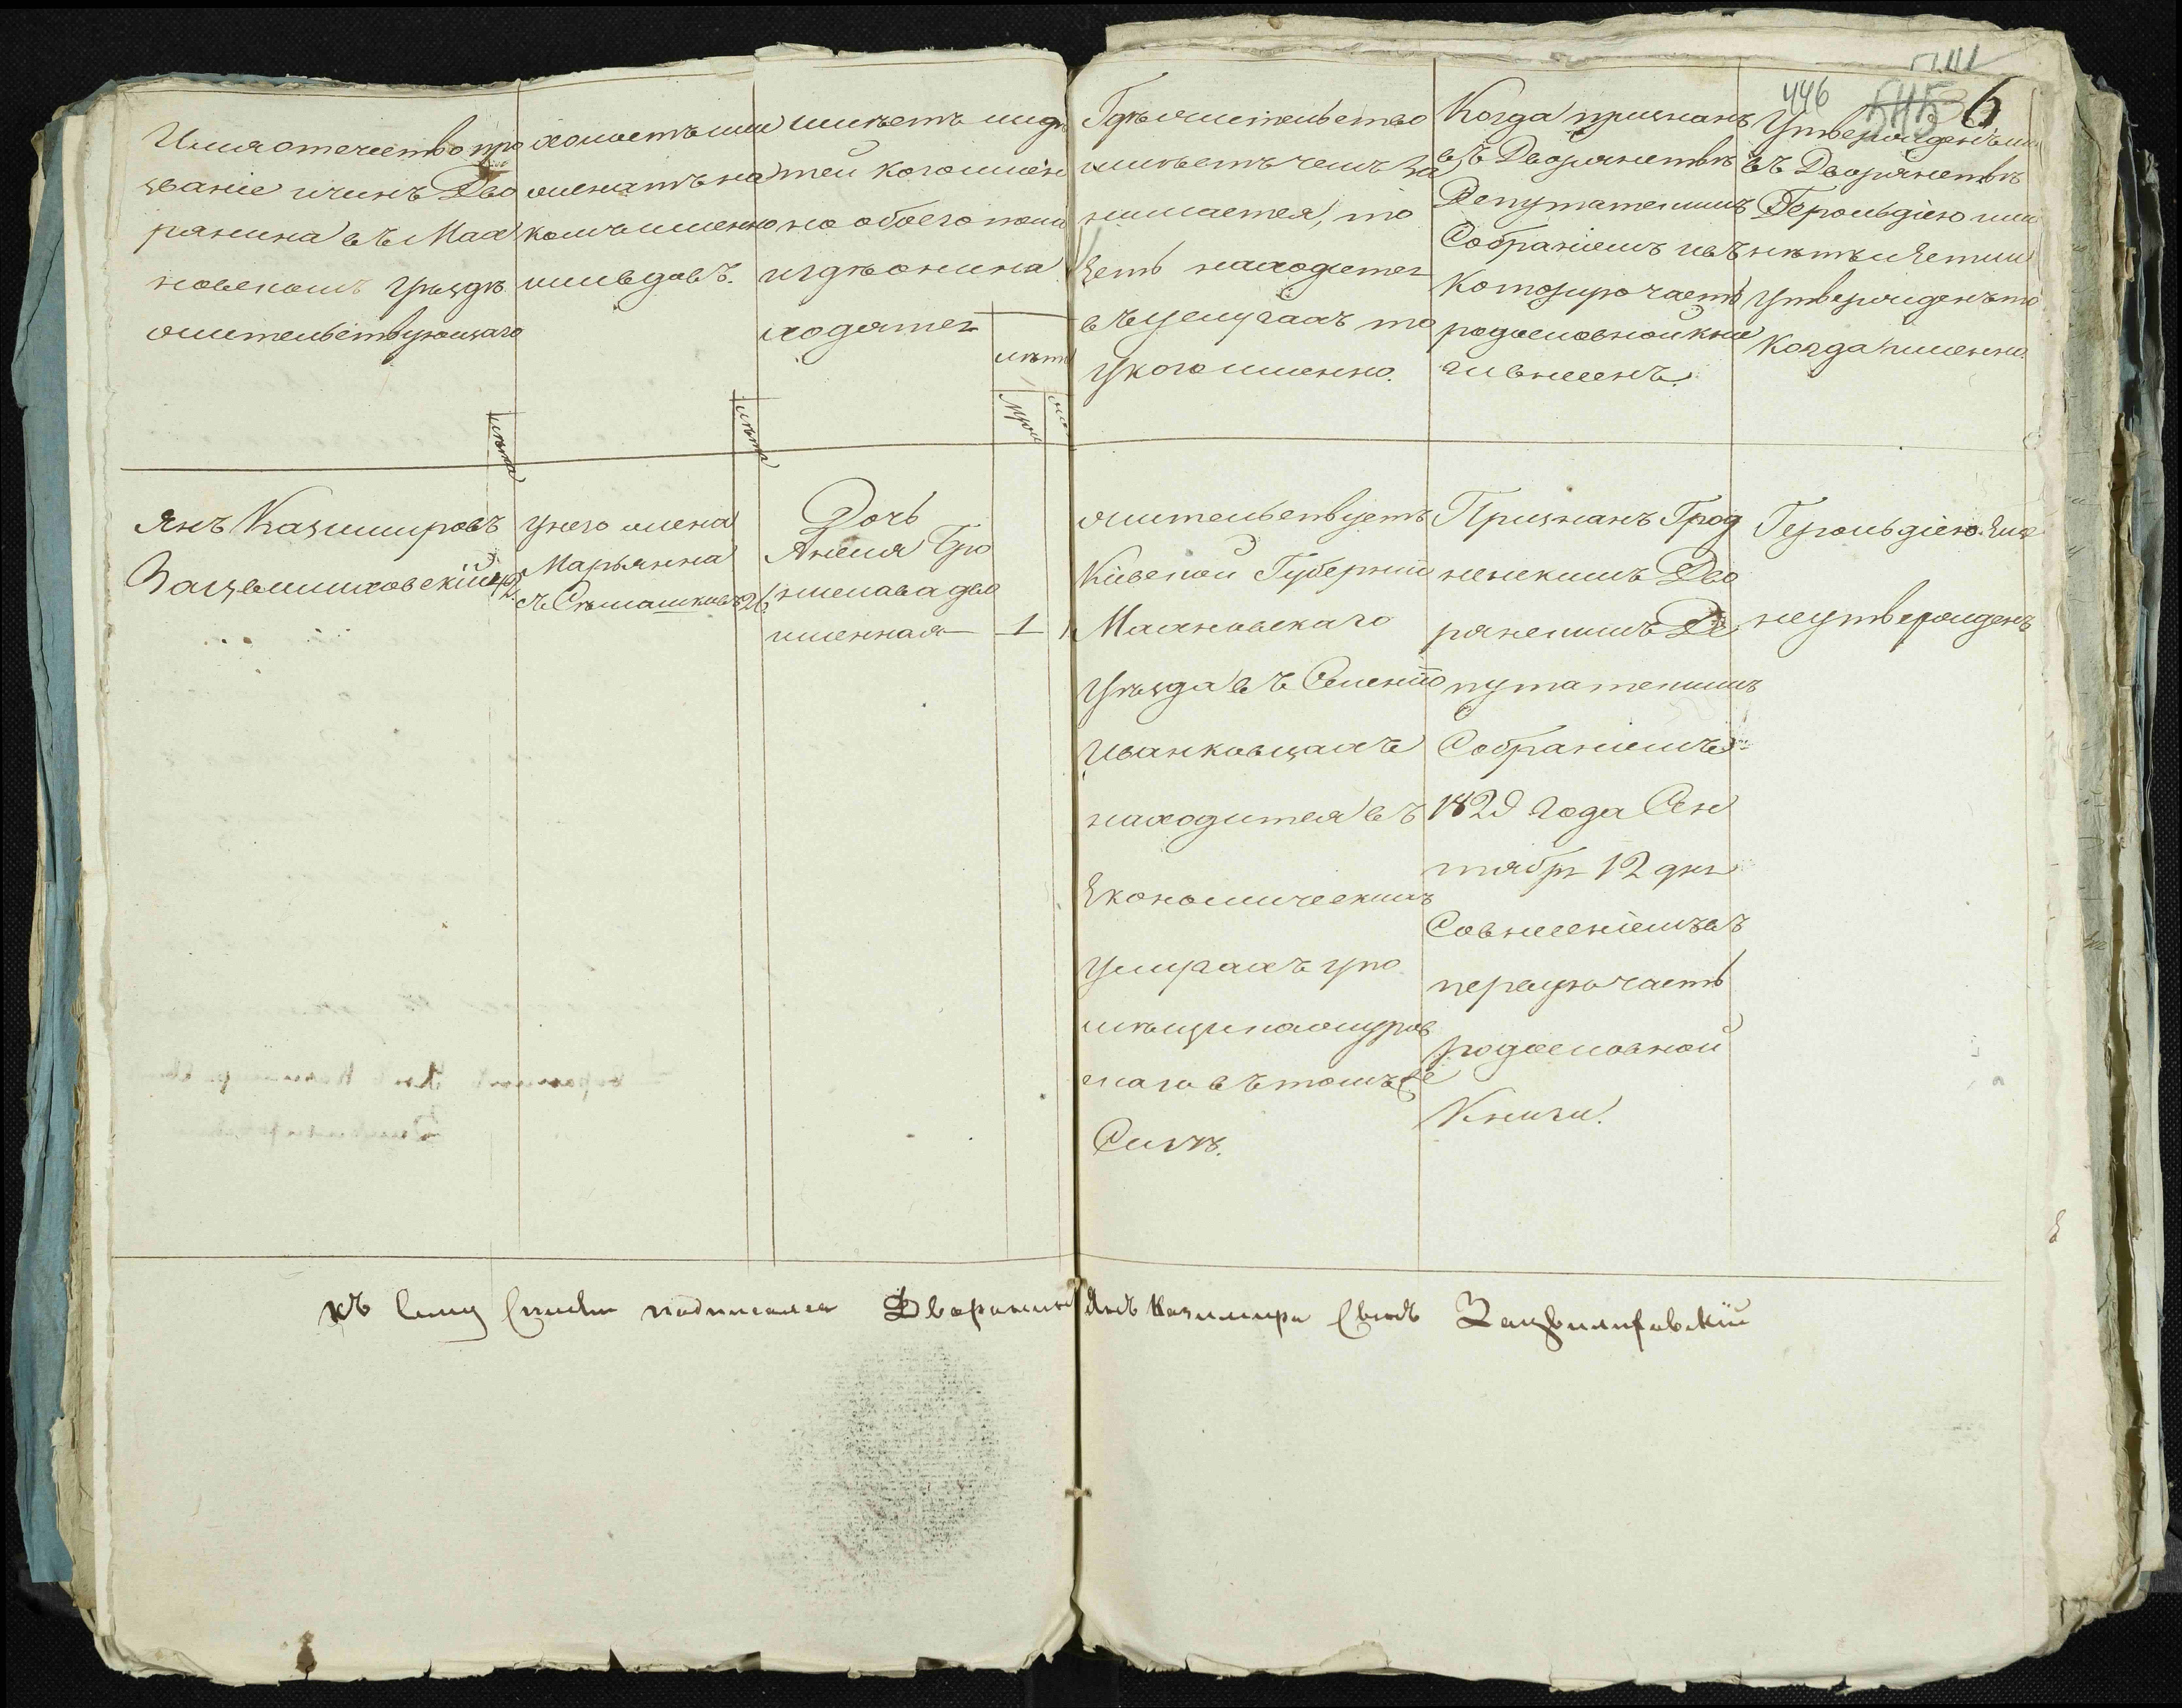 446
6
Имя отечество про
званіе и чинъ Дво
рянина въ Мах
новскомъ Уѣздѣ
жительствующаго
лѣта
холостъ или
женатъ на
комъ именно
или вдовъ.
лѣта
имѣетъ ли дѣ
тей кого имен
но обоего пола
и гдѣ они на
ходятся
лѣта
муж
жен
Гдѣ жительство
имѣетъ чемъ за
нимается, то
есть находится
въ услугахъ то
у кого именно.
Когда признанъ
въ Дворянствѣ
Депутатскимъ
Собраніемъ и въ
которую часть
родословной кни
ги внесенъ.
Утвержденъ ли
въ Дворянствѣ
Герольдіею или
нѣтъ и естли
утвержденъ то
когда именно.
Янъ Казимировъ
Зацвилиховскій 42.
у него жена
Марьянна
съ Сѣмашковъ 26.
Дочь
Анеля Бро
нислава дво
именная 1
жительствуетъ
Кіевской Губерніи
Махновскаго
Уѣзда въ Селеніи
Иванковцахъ
находится въ
Економическихъ
услугахъ у по
мѣщика
скаго въ томъ же
Селѣ.
Признанъ Грод
ненскимъ Дво
рянскимъ Де
путатскимъ
Собраніемъ
1829 года Сен
тября 12 дня
Совнесеніемъ въ
первую часть
родословной
Книги.
Герольдіею Еще
неутвержденъ
къ сему списки подписался Дворянинъ Янъ Казимира Сынъ Зацвилиховскій